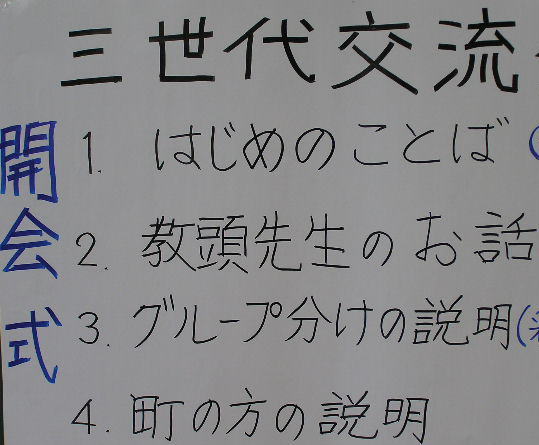 三世代交流
開会式
1. はじめのことば(
2. 教頭先生のお話
3. グループ分けの説明(
4. 町の方の説明